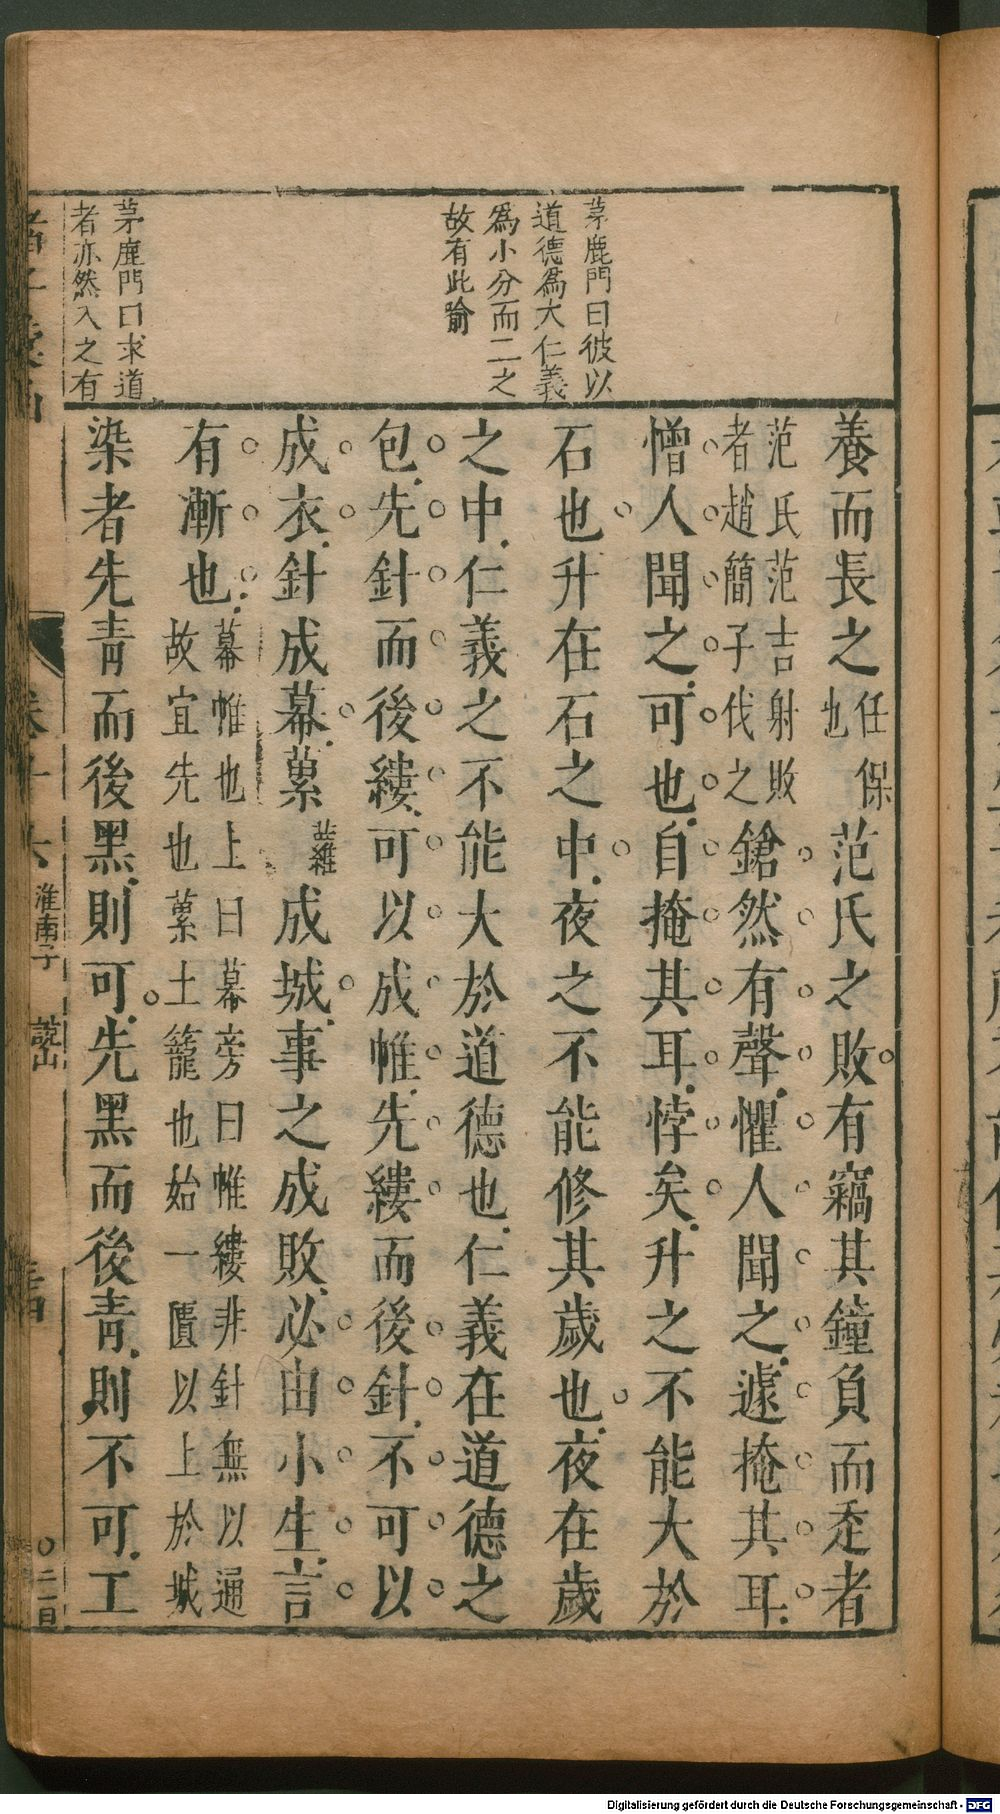 茅鹿門曰彼以
道德爲大仁義
爲小分而二之
故有此喻
茅鹿門曰求道
者亦然入之有
養而長之任保也范氏之敗有竊其鐘負而走者
范氏范吉射敗者趙簡子伐之鎗然有聲懼人聞之遽掩其耳
憎人聞之可也自掩其耳悖矣升之不能大於
石也升在石之中夜之不能修其歲也夜在歲
之中仁義之不能大於道德也仁義在道德之
包先針而後縷可以成帷先縷而後針不可以
成衣針成幕蔂藟成城事之成敗必由小生言
有漸也幕帷也上曰幕旁曰帷縷非針無以通故宜先也蔂土籠也始一匱以上於城
染者先青而後黑則可先黑而後青則不可工
卷十六 淮南子 說山
Digitalisierung gefördert durch die Deutsche Forschungsgemeinschaft - DFG